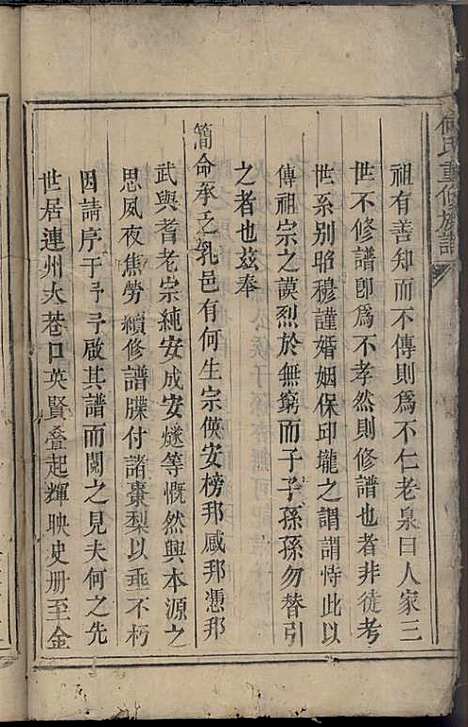 何氏重修族譜
祖有善知而不傳則為不仁老泉曰人家三
世不修譜卽為不孝然則修譜也者非徒考
世系別昭穆謹婚姻保邱壠之謂謂恃此以
傳祖宗之謨烈於無窮而子子孫孫勿替引
之者也玆奉
簡命承乏乳邑有何生宗俠安榜邦感邦憑邦
武與耆老宗純安成安燧等慨然興本源之
思夙夜焦勞纘修譜牒付諸棗梨以垂不朽
因請序于予予啟其譜而閱之見夫何之先
世居連州大巷口英賢叠起輝映史册至金